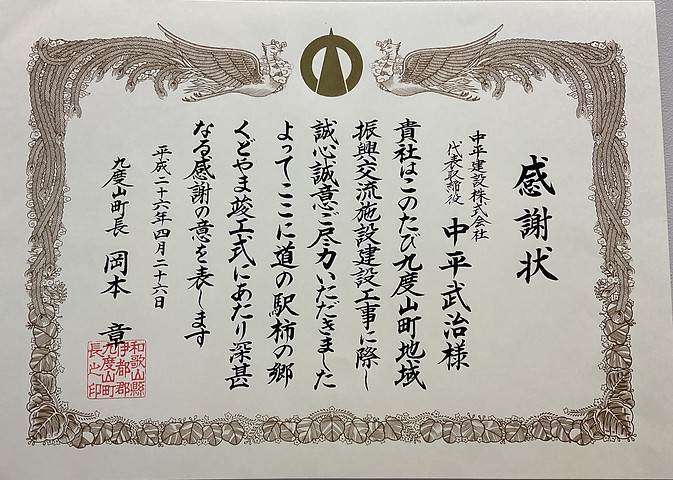 感謝状
中平建設株式会社
代表取締役 中平武治様
貴社はこのたび九度山町地域
振興交流施設建設工事に際し
誠心誠意ご尽力いただきました
よってここに道の駅柿の郷
くどやま竣工式にあたり深甚
なる感謝の意を表します
平成二十六年四月二十六日
九度山町長 岡本 章
和歌山縣
伊都郡
九度山町
長之印